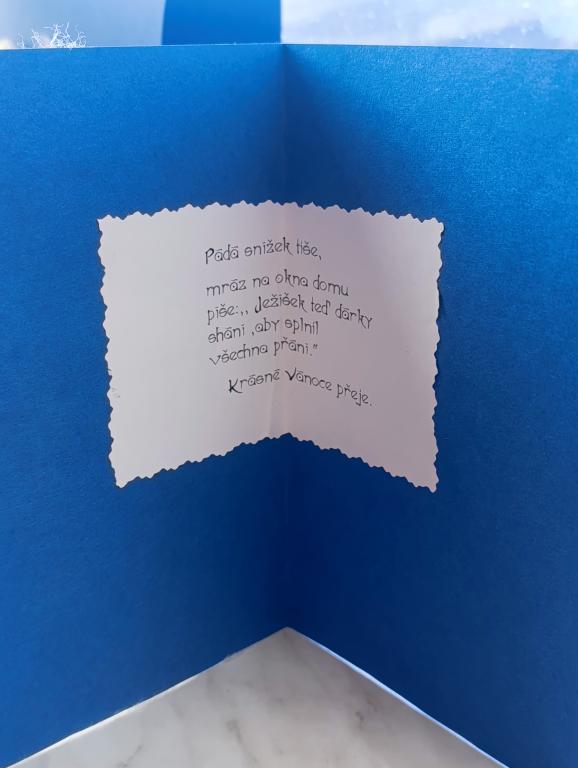 Pádá snížek tiše,
mráz na okna domu
píše:,, Ježíšek teď dárky
shání ,aby splnil
všechna přání."
Krásné Vánoce přeje.